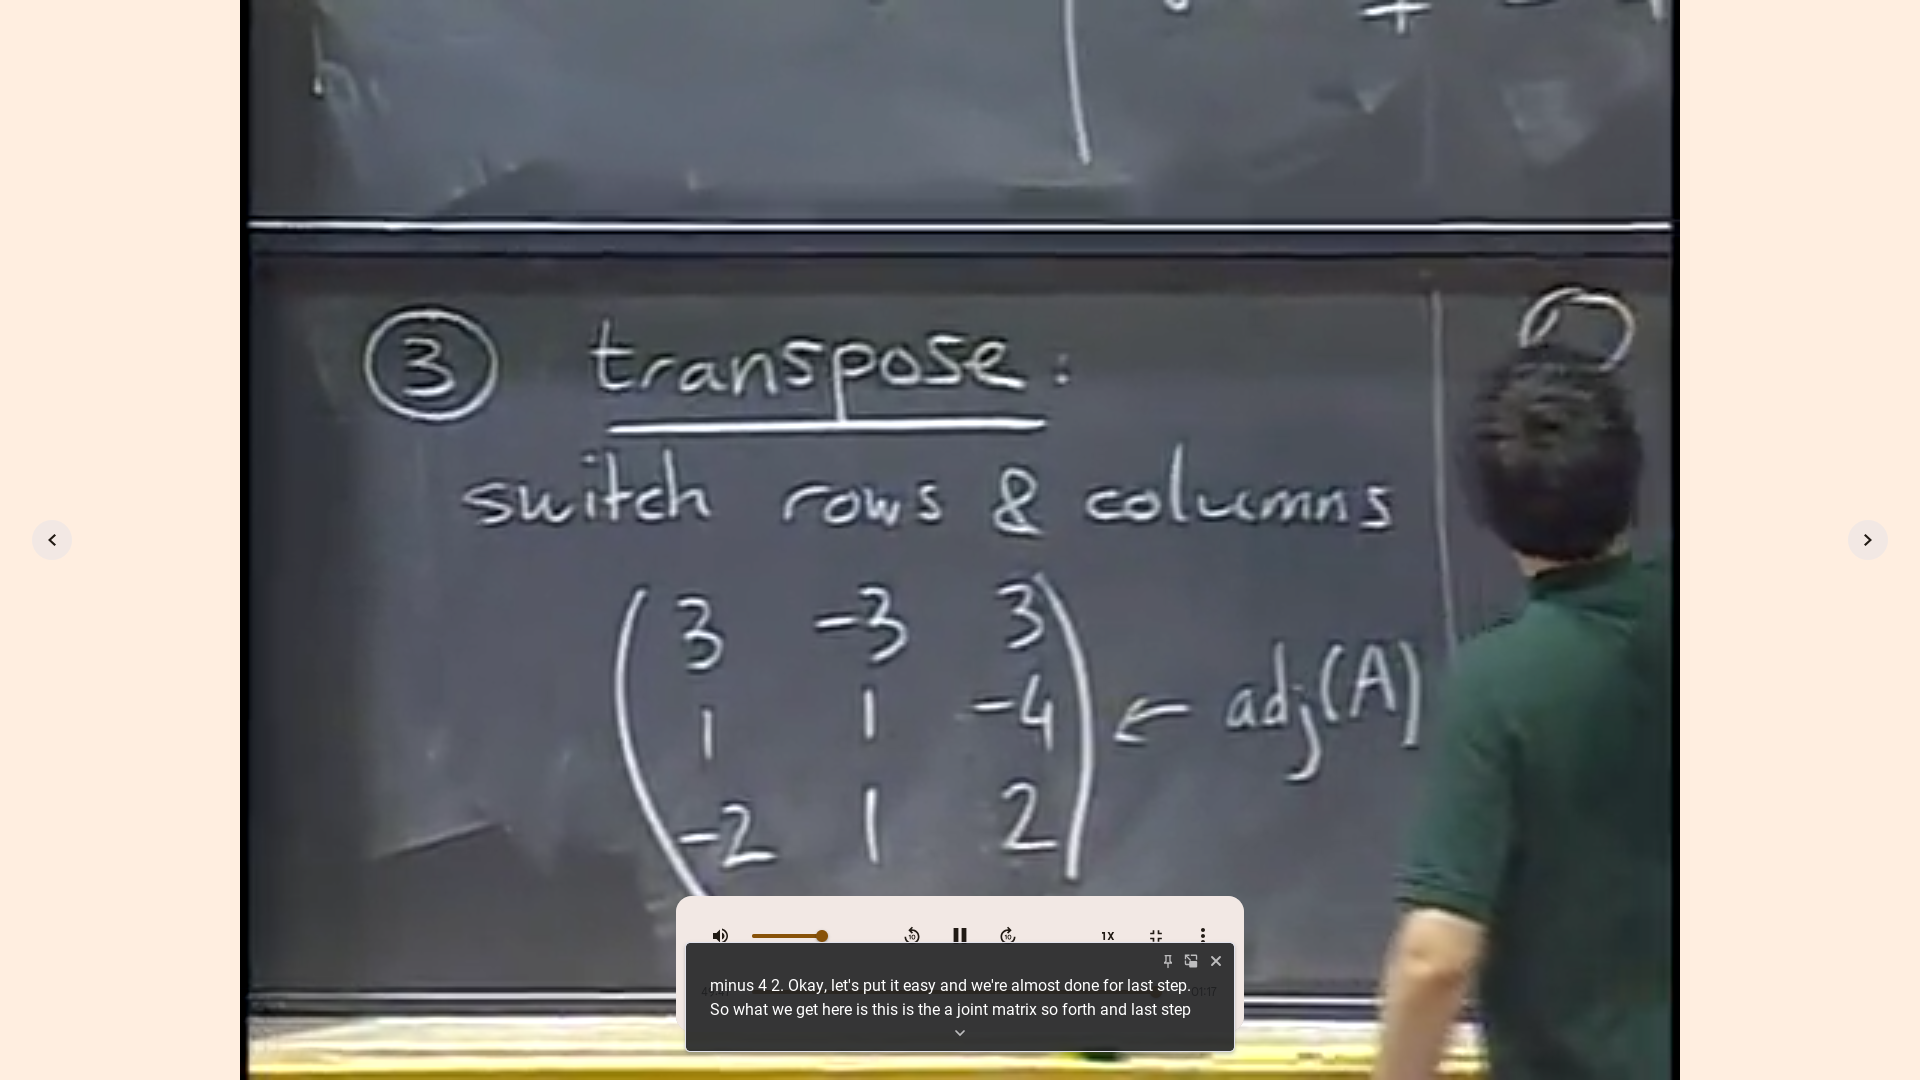 ③ transpose:
switch rows & columns
3 -3 3
1 1 -4 ← adj(A)
-2 1 2
1X
minus 4 2. Okay, let's put it easy and we're almost done for last step.
So what we get here is this is the a joint matrix so forth and last step